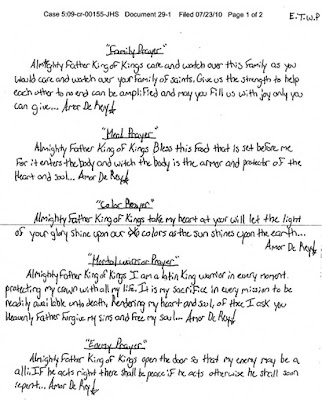 Case 5:09-cr-00155-JHS Document 29-1 Filed 07/23/10 Page 1 of 2
E.T.W.P
"Family Prayer"
Almighty Father King of Kings care and watch over this Family as you
would care and watch over your Family of saints. Give us the strength to help
each other to no end can be amplified and may you fill us with joy only you
can give... Amor De Rey
"Meal Prayer"
Almighty Father King of Kings Bless this Food that is set before me
For it enters the body and witch the body is the armor and protector of the
Heart and soul... Amor De Rey
"Color Prayer"
Almighty Father King of Kings take my heart at your will let the light
of your glory shine upon our colors as the sun shines upon the earth...
Amor De Rey
"Mental warrior Prayer"
Almighty Father King of Kings I am a latin King warrior in every moment
protecting my crown with all my life. It is my sacrifice in every mission to be
readily available unto death, Rendering my heart and soul, of thee I ask you
Heavenly Father Forgive my sins and free my soul... Amor De Rey
"Enemy Prayer"
Almighty Father King of Kings open the door so that my enemy may be a
alli. IF he acts right there shall be peace if he acts otherwise he shall soon
repent... Amor De Rey